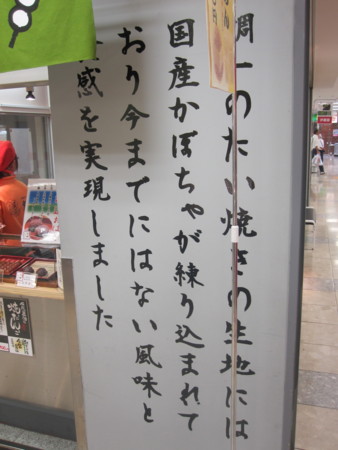 調一のたい焼きの生地には
国産かぼちゃが練り込まれて
おり今までにはない風味と
感を実現しました